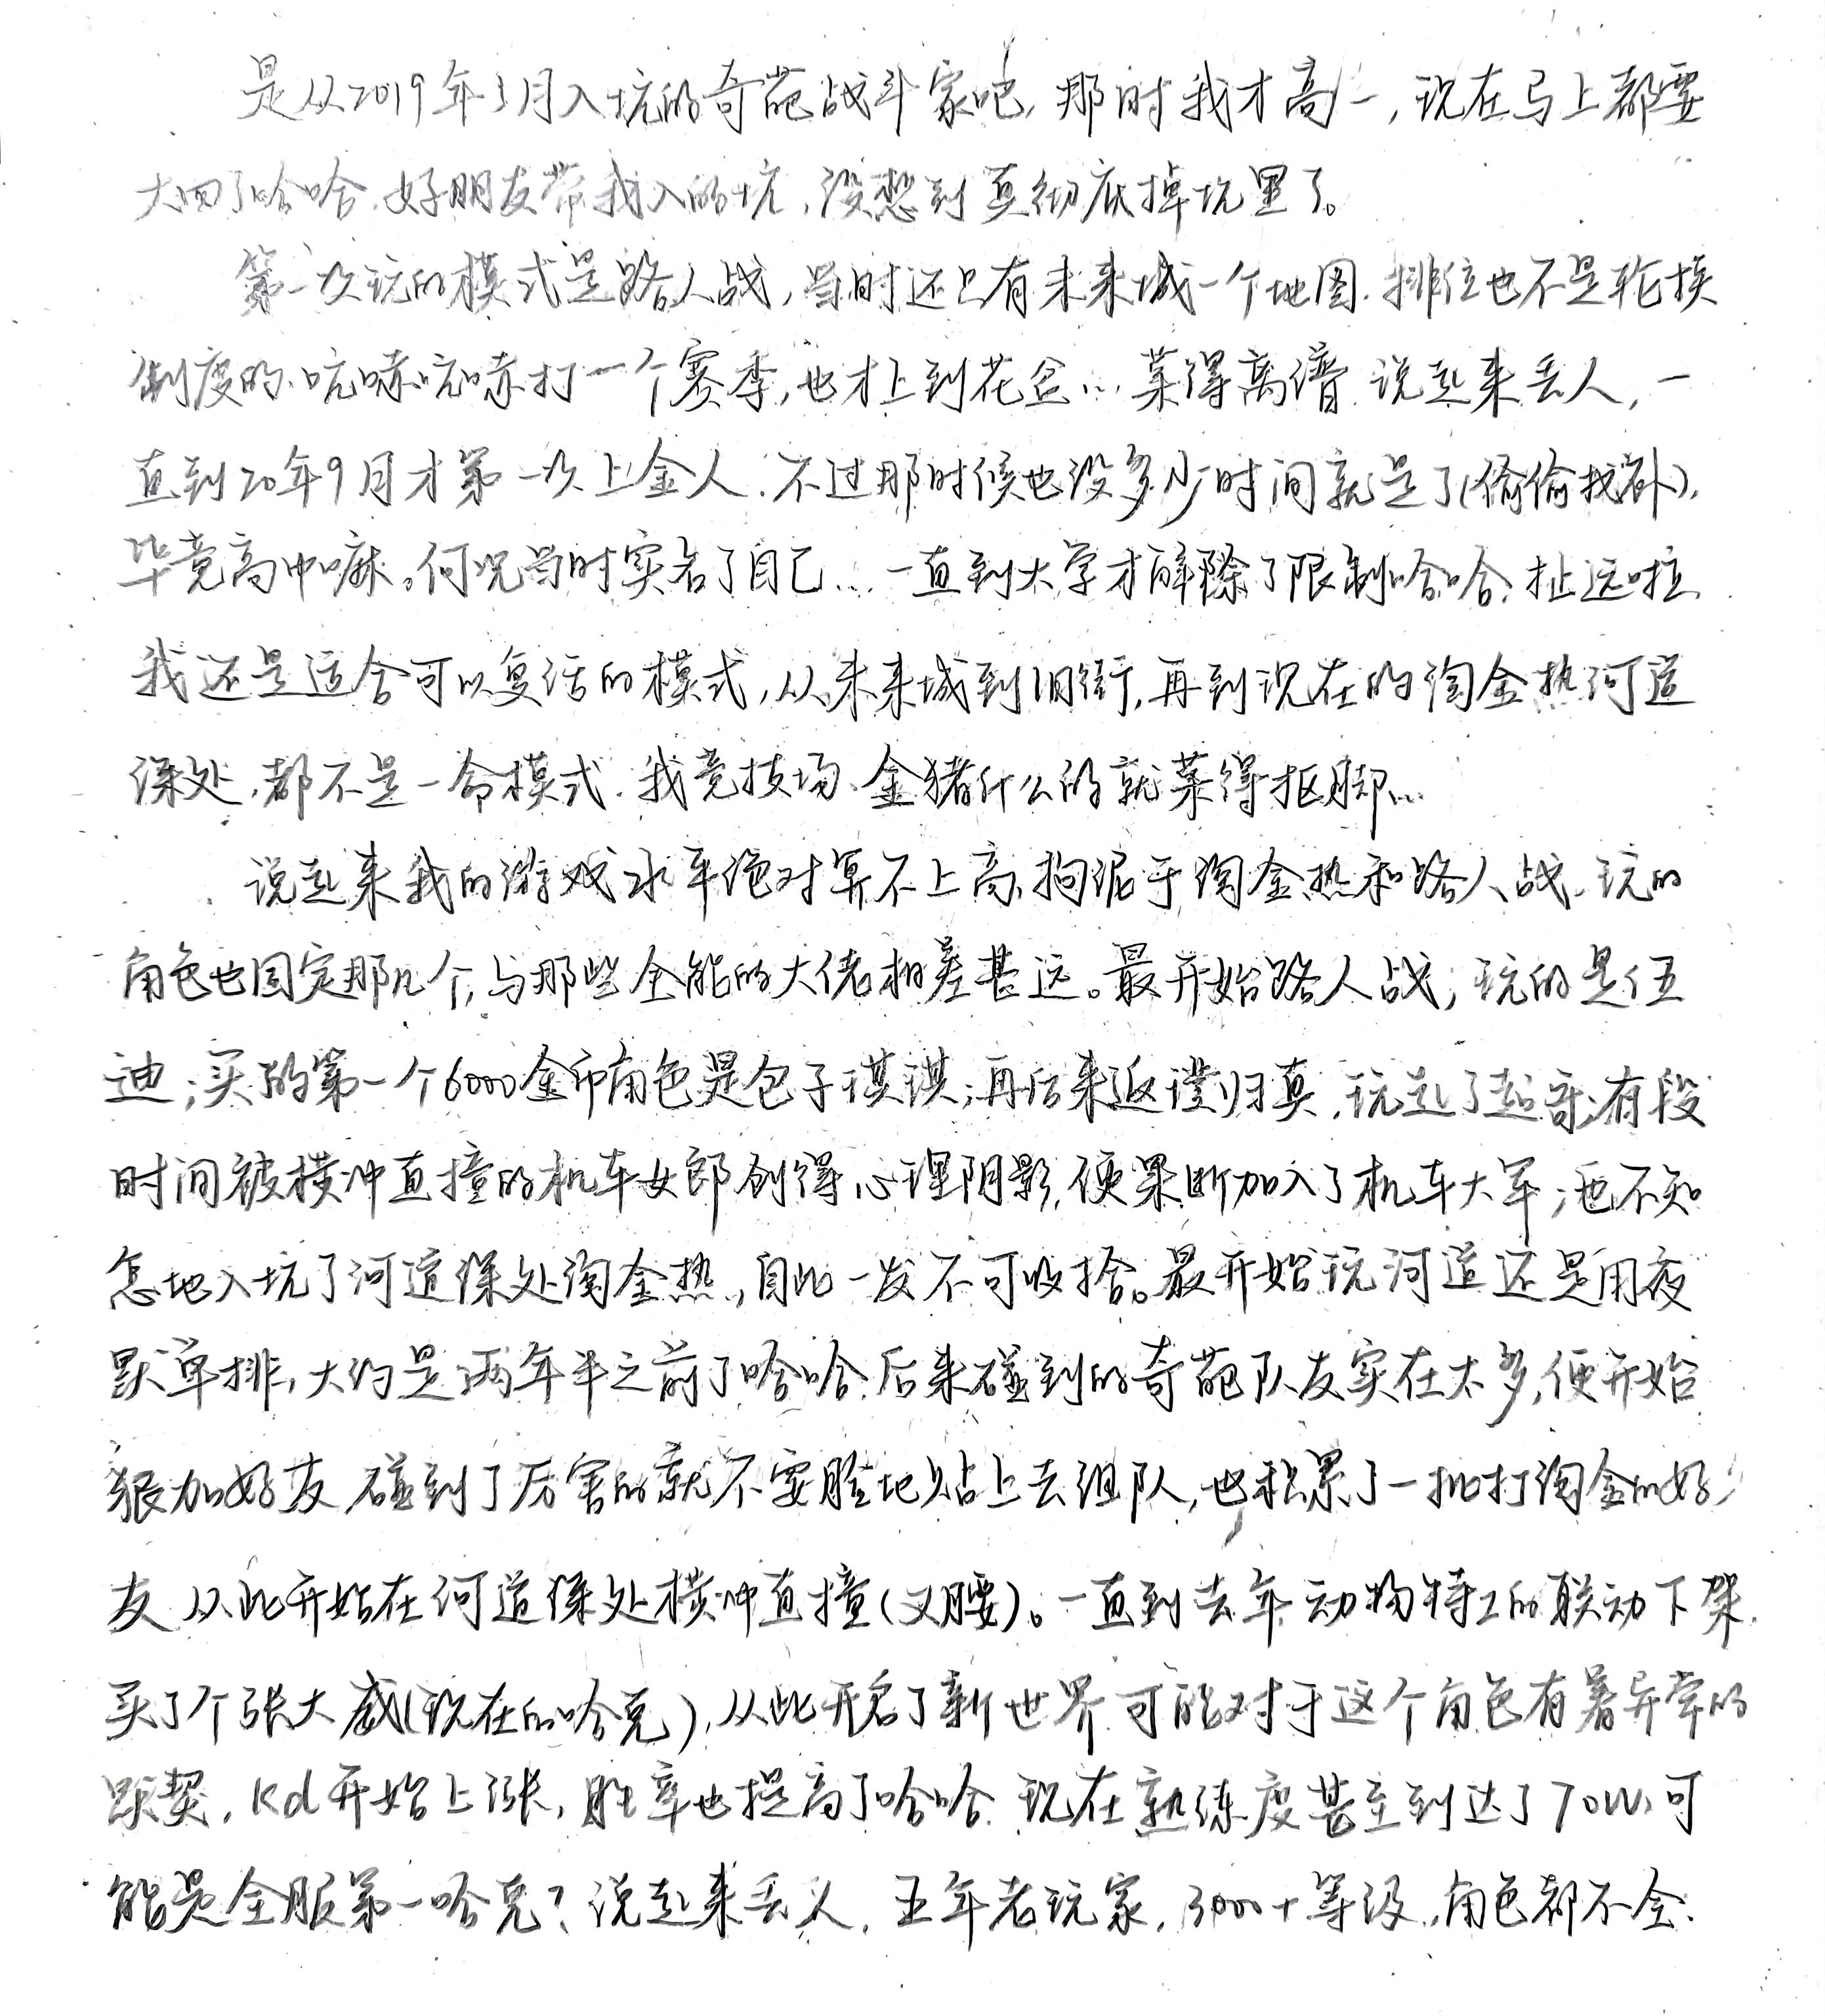 是从2019年3月入坑的奇葩战斗家吧,那时我才高一,现在马上都要
大四了哈哈.好朋友带我入的坑,没想到真彻底掉坑里了。
第一次玩的模式是路人战,当时还只有未来城一个地图.排位也不是轮换
制度的.吭哧吭哧打一个赛季,也才上到花盆…菜得离谱.说起来丢人,一
直到20年9月才第一次上金人.不过那时候也没多少时间就是了(偷偷找补),
毕竟高中嘛。何况当时实名了自己…一直到大学才解除了限制哈哈.扯远啦.
我还是适合可以复活的模式,从未来城到旧街,再到现在的淘金热河道
深处,都不是一命模式.我竞技场、金猪什么的就菜得抠脚…
说起来我的游戏水平绝对算不上高,拘泥于淘金热和路人战.玩的
角色也固定那几个,与那些全能的大佬相差甚远。最开始路人战;玩的是伍
迪;买的第一个6000金币角色是包子琪琪;再后来返璞归真,玩起了超哥;有段
时间被横冲直撞的机车女郎创得心理阴影,便果断加入了机车大军;也不知
怎地入坑了河道深处淘金热,自此一发不可收拾。最开始玩河道还是用夜
默单排,大约是两年半之前了哈哈.后来碰到的奇葩队友实在太多,便开始
狠加好友.碰到了厉害的就不要脸地贴上去组队,也积累了一批打淘金的好
友.从此开始在河道深处横冲直撞(叉腰)。一直到去年动物特工的联动下架.
买了个张大威(现在的哈克),从此开启了新世界.可能对于这个角色有着异常的
默契,kd开始上涨,胜率也提高了哈哈.现在熟练度甚至到达了70W,可
能是全服第一哈克?说起来丢人,五年老玩家,3000+等级,角色都不全.